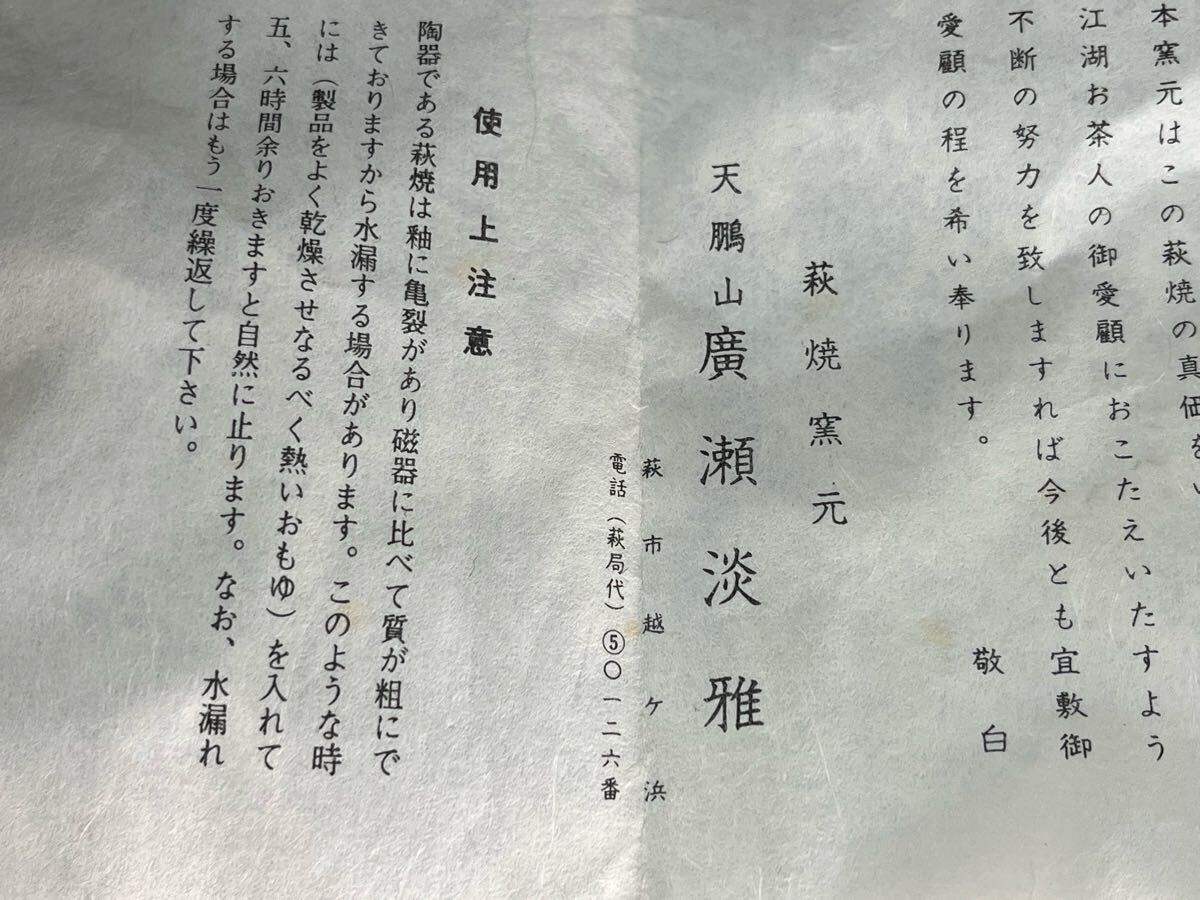 本窯元はこの萩焼の真価を
江湖お茶人の御愛顧におこたえいたすよう
不断の努力を致しますれば今後とも宜敷御
愛顧の程を希い奉ります。
敬白
萩焼窯元
天鵬山廣瀬淡雅
萩市越ケ浜
電話(萩局代)⑤〇一二六番
使用上注意
陶器である萩焼は釉に亀裂があり磁器に比べて質が粗にで
きておりますから水漏する場合があります。このような時
には(製品をよく乾燥させなるべく熱いおもゆ)を入れて
五、六時間余りおきますと自然に止ります。なお、水漏れ
する場合はもう一度繰返して下さい。